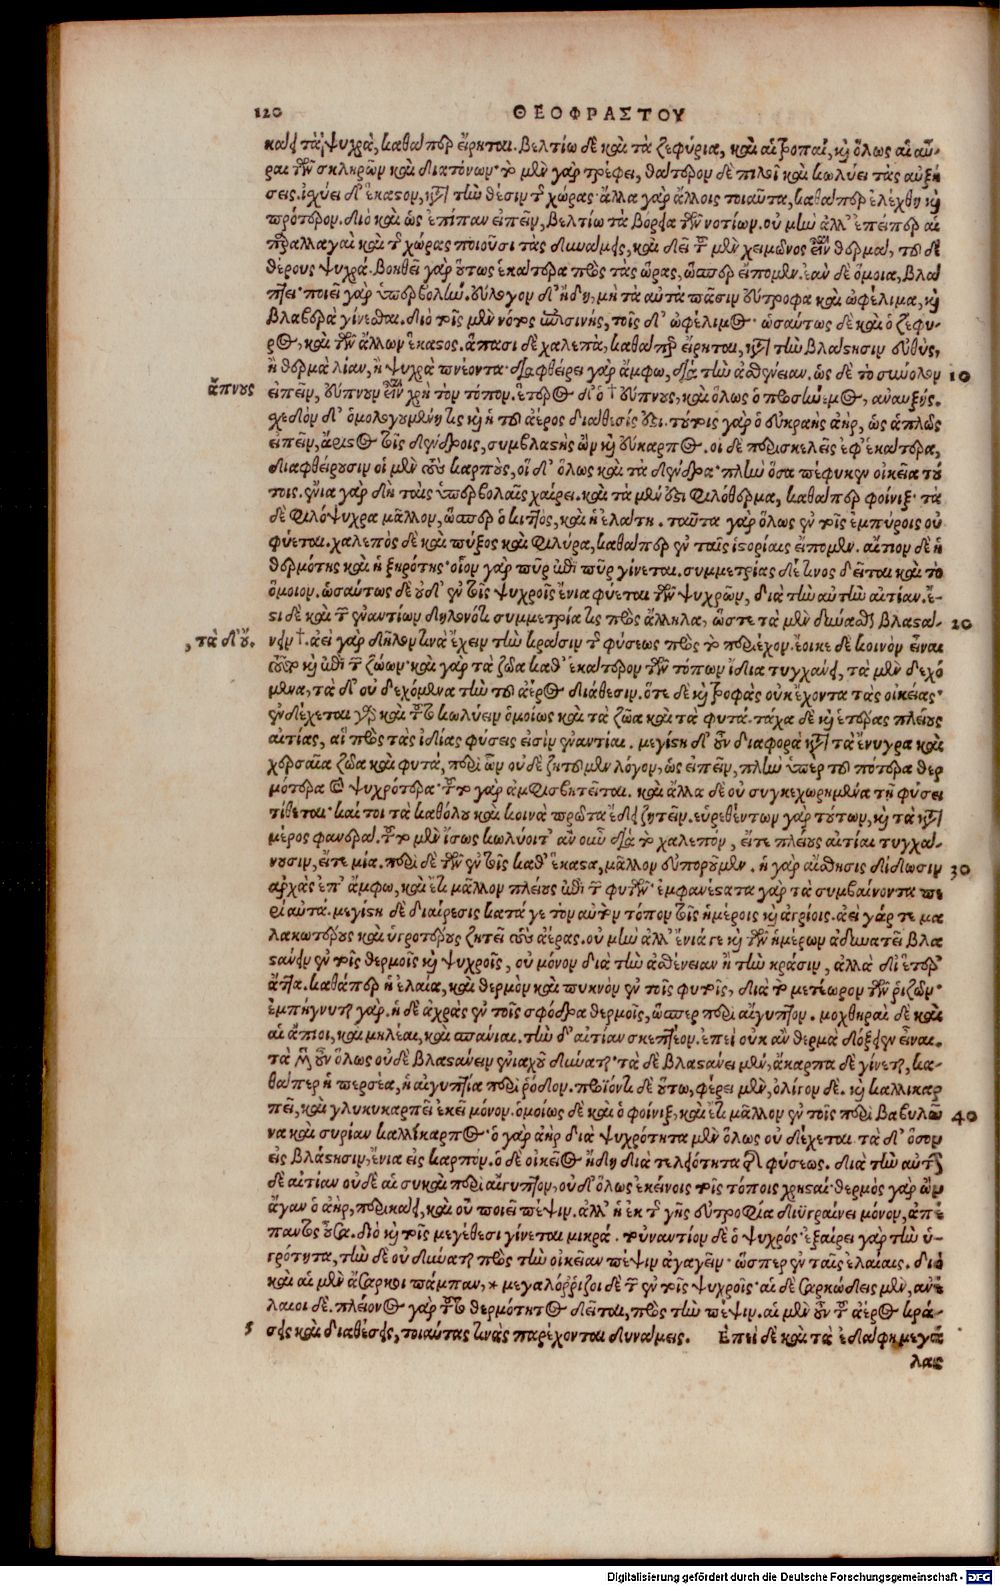 120 ΘΕΟΦΡΑΣΤΟΥ
καὶ τὰ ψυχρὰ, καθάπερ εἴρηται. βελτίω δὲ καὶ τὰ ζεφύρια, καὶ αἱ τροπαὶ, καὶ ὅλως αἱ αὖ-
ραι τῶν σκληρῶν καὶ διατόνων· τὸ μὲν γὰρ τρέφει, θάτερον δὲ πιλοῖ καὶ κωλύει τὰς αὐξή
σεις. ἰσχύει δ' ἕκαστον, κατὰ τὴν θέσιν τῆς χώρας· ἄλλα γὰρ ἄλλοις τοιαῦτα, καθάπερ ἐλέχθη καὶ
πρότερον. διὸ καὶ ὡς ἐπίπαν εἰπεῖν, βελτίω τὰ βόρεια τῶν νοτίων. οὐ μὴν ἀλλ' ἐπείπερ αἱ
παραλλαγαὶ καὶ τῆς χώρας ποιοῦσι τὰς δυνάμεις, καὶ δεῖ τοῦ μὲν χειμῶνος εἶναι θερμά, τοῦ δὲ
θέρους ψυχρά. βοηθεῖ γὰρ οὕτως ἑκάτερα πρὸς τὰς ὥρας, ὥσπερ εἴπομεν. ἐὰν δὲ ὅμοια, βλά
πτει· ποιεῖ γὰρ ὑπερβολήν. εὔλογον δ' ἤδη, μὴ τὰ αὐτὰ πᾶσιν εὔτροφα καὶ ὠφέλιμα, καὶ
βλαβερὰ γίνεσθαι. διὸ τοῖς μὲν νότος ἐπισινής, τοῖς δ' ὠφέλιμος· ὡσαύτως δὲ καὶ ὁ ζέφυ-
ρος, καὶ τῶν ἄλλων ἕκαστος. ἅπασι δὲ χαλεπὰ, καθάπερ εἴρηται, κατὰ τὴν βλάστησιν εὐθὺς,
ἢ θερμὰ λίαν, ἢ ψυχρὰ πνέοντα· διαφθείρει γὰρ ἄμφω, διὰ τὴν ἀσθένειαν. ὡς δὲ τὸ σύνολον 10
ἄπνους εἰπεῖν, εὔπνουν εἶναι χρὴ τὸν τόπον. ἕτερος δ' ὁ † εὔπνους, καὶ ὅλως ὁ προσήνεμος, ἀναυξής.
σχεδὸν δ' ὁμολογουμένη τις καὶ ἡ τοῦ ἀέρος διάθεσίς ἐστι. τούτοις γὰρ ὁ εὐκραὴς ἀὴρ, ὡς ἁπλῶς
εἰπεῖν, ἄριστος τοῖς δένδροις, εὐμβλαστὴς ὢν καὶ εὔκαρπος. οἱ δὲ περισκελεῖς ἐφ' ἑκάτερα,
διαφθείρουσιν οἱ μὲν τοὺς καρποὺς, οἱ δ' ὅλως καὶ τὰ δένδρα· πλὴν ὅσα πέφυκεν οἰκεῖα τού
τοις. ἔνια γὰρ δὴ ταῖς ὑπερβολαῖς χαίρει. καὶ τὰ μὲν ἔτι φιλόθερμα, καθάπερ φοίνιξ· τὰ
δὲ φιλόψυχρα μᾶλλον, ὥσπερ ὁ κιττὸς, καὶ ἡ ἐλάτη. ταῦτα γὰρ ὅλως ἐν τοῖς ἐμπύροις οὐ
φύεται. χαλεπὸς δὲ καὶ πύξος καὶ φιλύρα, καθάπερ ἐν ταῖς ἱστορίαις εἴπομεν. αἴτιον δὲ ἡ
θερμότης καὶ ἡ ξηρότης· οἷον γὰρ πῦρ ἐπὶ πῦρ γίνεται. συμμετρίας δέ τινος δεῖται καὶ τὸ
ὅμοιον. ὡσαύτως δὲ οὐδ' ἐν τοῖς ψυχροῖς ἔνια φύεται τῶν ψυχρῶν, διὰ τὴν αὐτὴν αἰτίαν. ἔ-
στι δὲ καὶ τῶν ἐναντίων δηλονότι συμμετρία τις πρὸς ἄλληλα, ὥστε τὰ μὲν δύνασθαι βλαστά- 20
, τὰ δ' οὔ. νειν †. ἀεὶ γὰρ δῆλον τινὰ ἔχειν τὴν κρᾶσιν τῆς φύσεως πρὸς τὸ περιέχον. ἔοικε δὲ κοινὸν εἶναι
τοῦτο καὶ ἐπὶ τῶν ζώων· καὶ γὰρ τὰ ζῶα καθ' ἑκάτερον τῶν τόπων ἴδια τυγχάνει, τὰ μὲν δεχό
μενα, τὰ δ' οὐ δεχόμενα τὴν τοῦ ἀέρος διάθεσιν. ὁτὲ δὲ καὶ τροφὰς οὐκ ἔχοντα τὰς οἰκείας·
ἐνδέχεται γὰρ καὶ τοῦτο κωλύειν ὁμοίως καὶ τὰ ζῶα καὶ τὰ φυτά. τάχα δὲ καὶ ἑτέρας πλείους
αἰτίας, αἳ πρὸς τὰς ἰδίας φύσεις εἰσὶν ἐναντίαι. μεγίστη δ' οὖν διαφορὰ κατὰ τὰ ἔνυγρα καὶ
χερσαῖα ζῶα καὶ φυτά, περὶ ὧν οὐδὲ ζητοῦμεν λόγον, ὡς εἰπεῖν, πλὴν ὑπὲρ τοῦ πότερα θερ
μότερα ἢ ψυχρότερα· τοῦτο γὰρ ἀμφισβητεῖται. καὶ ἄλλα δὲ οὐ συγκεχωρημένα τῇ φύσει
τίθεται· καίτοι τὰ καθόλου καὶ κοινὰ πρῶτα ἔδει ζητεῖν. εὑρεθέντων γὰρ τούτων, καὶ τὰ κατὰ
μέρος φανερά. τοῦτο μὲν ἴσως κωλύοιτ' ἂν οὖν διὰ τὸ χαλεπόν, εἴτε πλείους αἰτίαι τυγχά-
νουσιν, εἴτε μία. περὶ δὲ τῶν ἐν τοῖς καθ' ἕκαστα, μᾶλλον εὐποροῦμεν. ἡ γὰρ αἴσθησις δίδωσιν 30
ἀρχὰς ἐπ' ἄμφω, καὶ ἔτι μᾶλλον πλείους ἐπὶ τῶν φυτῶν· ἐμφανέστατα γὰρ τὰ συμβαίνοντα πε
ρὶ αὐτά. μεγίστη δὲ διαίρεσις κατά γε τὸν αὐτὸν τόπον τοῖς ἡμέροις καὶ ἀγρίοις. ἀεὶ γάρ τε μα
λακωτέρους καὶ ὑγροτέρους ζητεῖ τοὺς ἀέρας. οὐ μὴν ἀλλ' ἔνιά γε καὶ τῶν ἡμέρων ἀδυνατεῖ βλα
στάνειν ἐν τοῖς θερμοῖς καὶ ψυχροῖς, οὐ μόνον διὰ τὴν ἀσθένειαν ἢ τὴν κρᾶσιν, ἀλλὰ δι' ἕτερ'
ἄττα. καθάπερ ἡ ἐλαία, καὶ θερμὸν καὶ πυκνὸν ἐν τοῖς φυτοῖς, διὰ τὸ μετέωρον τῶν ῥιζῶν·
ἐμπήγνυται γάρ. ἡ δὲ ἀχρὰς ἐν τοῖς σφόδρα θερμοῖς, ὥσπερ περὶ αἴγυπτον. μοχθηραὶ δὲ καὶ
αἱ ἄπιοι, καὶ μηλέαι, καὶ σπάνιαι. τὴν δ' αἰτίαν σκεπτέον. ἐπεὶ οὐκ ἂν θερμὰ δόξειεν εἶναι.
τὰ μὲν οὖν ὅλως οὐδὲ βλαστάνειν ἐνιαχοῦ δύναται· τὰ δὲ βλαστάνει μὲν, ἄκαρπα δὲ γίνεται, κα-
θάπερ ἡ περσέα, ἡ αἰγυπτία περὶ ῥόδον. προϊόντι δὲ οὕτω, φέρει μὲν, ὀλίγον δέ. καὶ καλλικαρ
πεῖ, καὶ γλυκυκαρπεῖ ἐκεῖ μόνον. ὁμοίως δὲ καὶ ὁ φοίνιξ, καὶ ἔτι μᾶλλον ἐν τοῖς περὶ βαβυλῶ 40
να καὶ συρίαν καλλίκαρπος· ὁ γὰρ ἀὴρ διὰ ψυχρότητα μὲν ὅλως οὐ δέχεται τὰ δ' ὅσον
εἰς βλάστησιν, ἔνια εἰς καρπόν. ὁ δὲ οἰκεῖος ἤδη διὰ τελειότητα τῆς φύσεως. διὰ τὴν αὐτὴν
δὲ αἰτίαν οὐδὲ αἱ συκαῖ περὶ αἴγυπτον, οὐδ' ὅλως ἐκείνοις τοῖς τόποις χρησταί· θερμὸς γὰρ ὢν
ἄγαν ὁ ἀὴρ, περικαίει, καὶ οὐ ποιεῖ πέψιν. ἀλλ' ἡ ἐκ τῆς γῆς εὐτροφία διϋγραίνει μόνον, ἄπε
πανος οὖσα. διὸ καὶ τοῖς μεγέθεσι γίνεται μικρά. τοὐναντίον δὲ ὁ ψυχρός· ἐξαίρει γὰρ τὴν ὑ-
γρότητα, τὴν δὲ οὐ δύναται πρὸς τὴν οἰκείαν πέψιν ἀγαγεῖν· ὥσπερ ἐν ταῖς ἐλαίαις. διὸ
καὶ αἱ μὲν ἄσαρκοι πάμπαν, * μεγαλόρριζοι δὲ τῶν ἐν τοῖς ψυχροῖς· αἱ δὲ σαρκώδεις μὲν, ἀνέ
λαιοι δέ. πλείονος γὰρ τοῦτο θερμότητος δεῖται, πρὸς τὴν πέψιν. αἱ μὲν οὖν τοῦ ἀέρος κρά-
5 σεις καὶ διαθέσεις, τοιαύτας τινὰς παρέχονται δυνάμεις. Ἐπεὶ δὲ καὶ τὰ ἐδάφη μεγά
λας
Digitalisierung gefördert durch die Deutsche Forschungsgemeinschaft - DFG